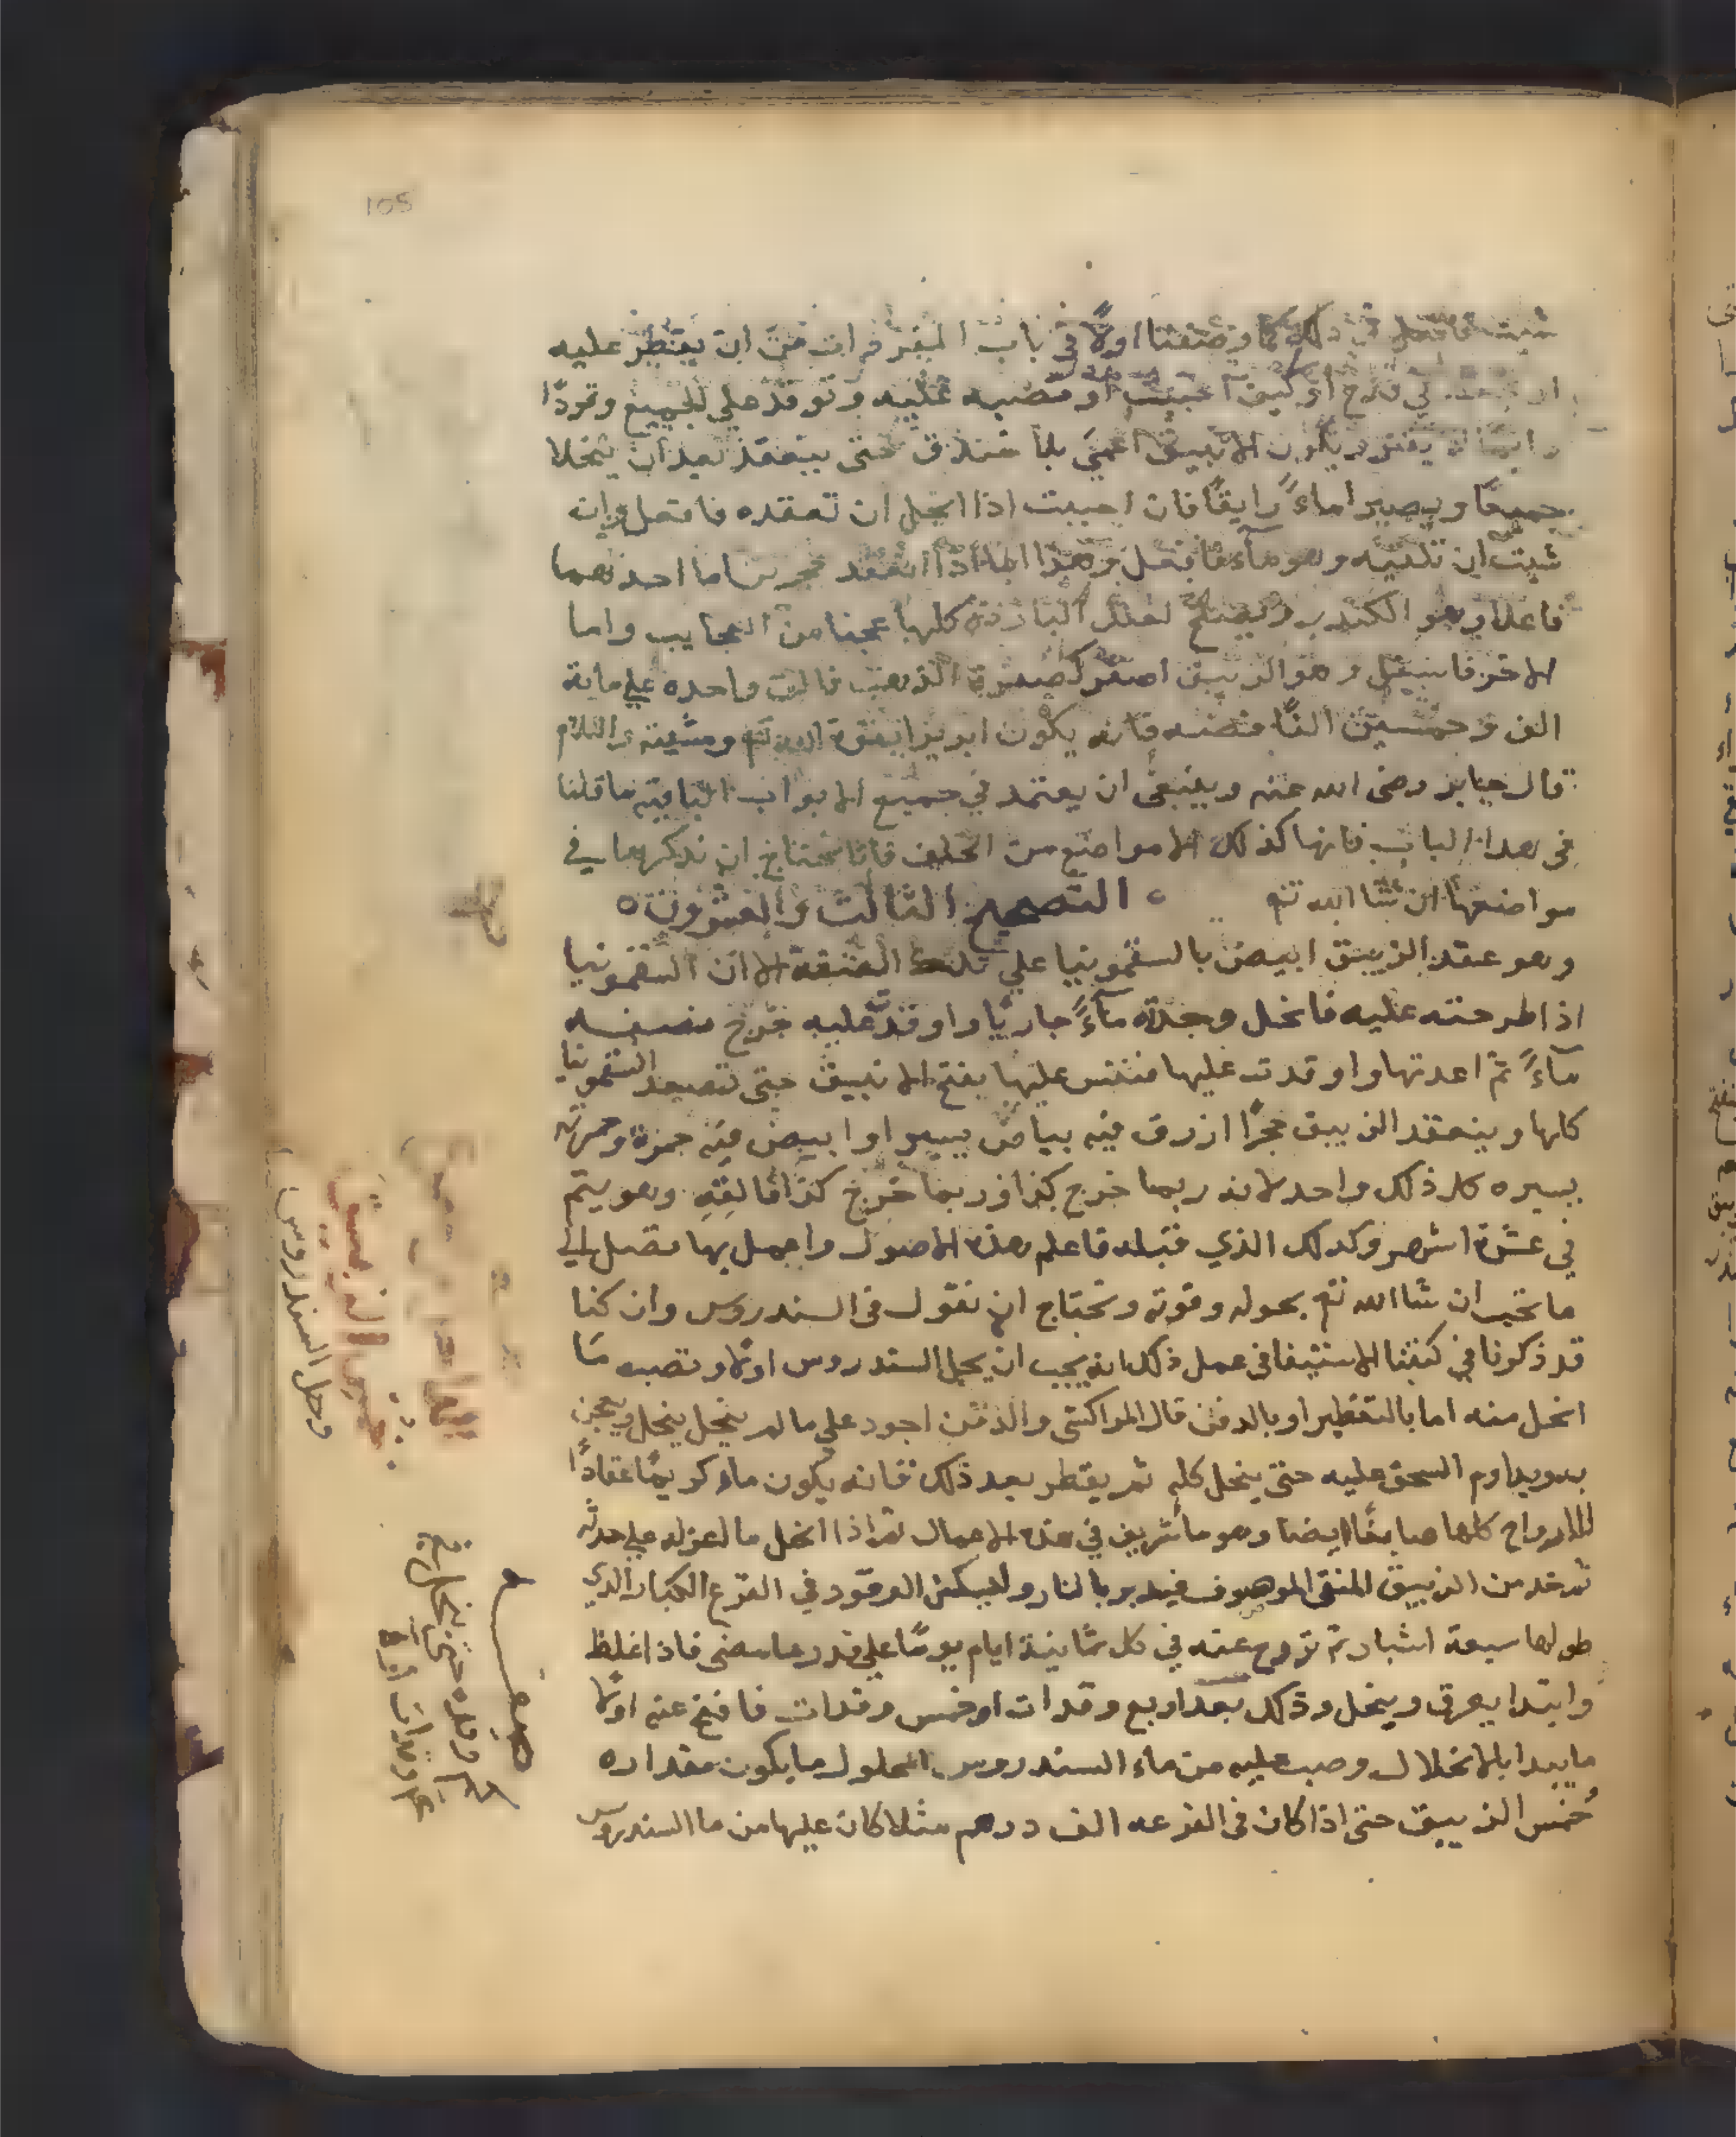 105
شيت فافعل في ذلك كما وصفنا اولًا في باب المفردات من ان يقطر عليه
في قدح او كيف احببت او تصبه عليه وتوقد علي الجميع وتردّ
ويكون الانبيق اعمي بلا خندق حتى ينعقد بعد ان ينحلا
جميعًا ويصير اماءً رايقًا فان احببت اذا انحل ان تعقده فافعل وان
شيت ان تلقيه وهو ماء فافعل وهذا الماء اذا انعقد حجرين اما احدهما
فاعلا وهو الكندر ويصلح لعلل الباردة كلها عجبا من العجايب واما
الاخر فاسفل وهو الزيبق اصفر كصفرة الذهب فالق واحده علي ماية
الف وخمسين الفًا فضه فانه يكون ابريزا بقوة الله تع ومشيته والسلام
قال جابر رضى الله عنه وينبغى ان يعتمد في جميع الابواب الباقية ما قلنا
فى هذا الباب فانها كذلك الا مواضع من الخلف فانا نحتاج ان نذكرها في
مواضعها ان شا الله تع ه التصحيح الثالث والعشرون ه
وهو عقد الزيبق ابيض بالسقمونيا علي تلك الصفة الا ان السقمونيا
اذا طرحته عليه فانحل وجدته ماءً جاريًا واوقدّ عليه خرج نصفه
ماءً ثم اعدتها واوقدت عليها فنفس عليها بفتح الانبيق حتى تصعد السقمونيا
كلها وينعقد الزيبق حجرًا ازرق فيه بياض يسير او ابيض فيه حمرة وحمرته
يسيره كل ذلك واحد لانه ربما خرج كذا وربما خرج كذا فالقه وهو يتم
في عشرة اشهر وكذلك الذي قبله فاعلم هذه الاصول واعمل بها تصل الي
ما تحب ان شا الله تع بحوله وقوته ونحتاج ان نقول فى السندروس وان كنا
قد ذكرنا في كتبنا الاستيفا في عمل ذلك انه يجب ان يحل السندروس اولا وتصبه ما
انحل منه اما بالتقطير او بالدفن قال المراكشى والدفن اجود على ما لم ينحل ينحل ويعجن
به ويداوم السحق عليه حتى ينحل كله ثم يقطر بعد ذلك فانه يكون ماء كريمًا عقادًا
للارواح كلها صابغًا ايضا وهو ما شريف في هذه الاعمال ثم اذا انحل ما لعزله علي حدته
ثم خذ من الزيبق المنقى الموصوف فيدبر بالنار وليكن الوقود في القرع الكبار الذي
طولها سبعة اشبار ثم تروح عنه في كل ثمانية ايام يومًا علي قدر ما مضى فاذا غلظ
وابتدا يعرق وينحل وذلك بعد اربع وقدات او خمس وقدات فافتح عنه اولا
ما يبدا بالانحلال وصب عليه من ماء السندروس المحلول ما يكون مقداره
خمس الزيبق حتى اذا كان فى القرعه الف درهم مثلا كان عليها من ما السندروس
وحل السندروس
الزيبق